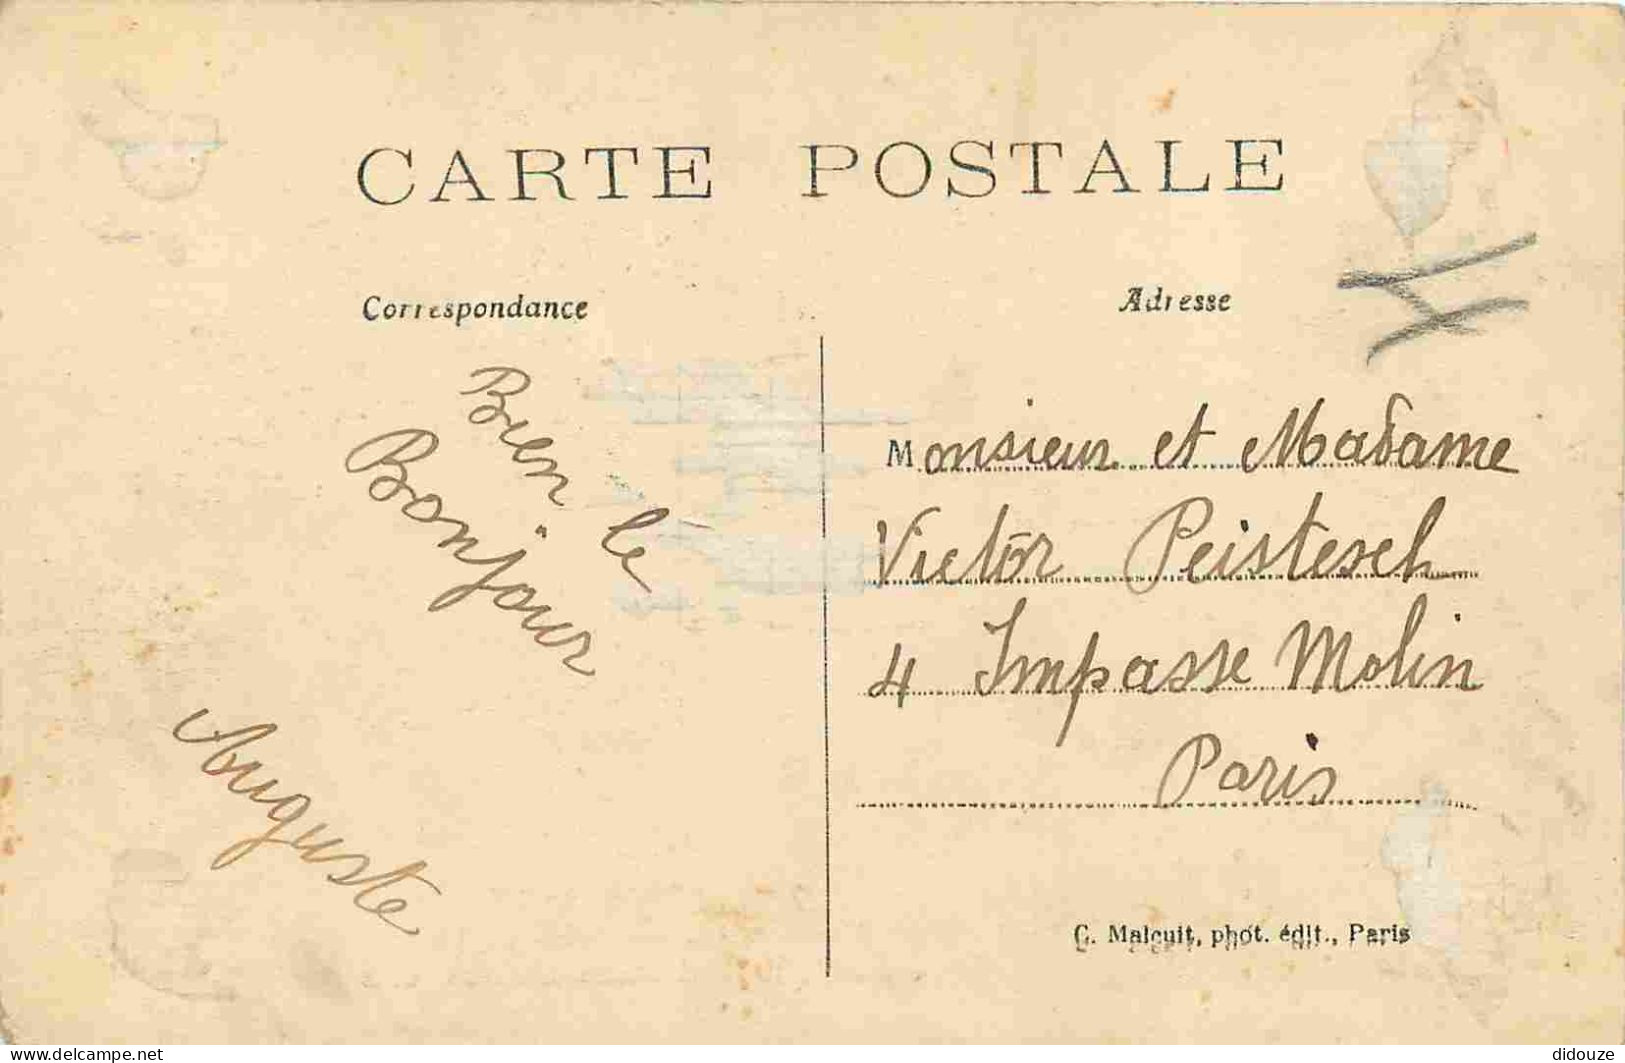 CARTE POSTALE
Correspondance
Adresse
Bien le
Bonjour
Auguste
Monsieur et Madame
Victor Peistesch
4 Impasse Molin
Paris
C. Malcuit, phot. édit., Paris
www.delcampe.net
didouze